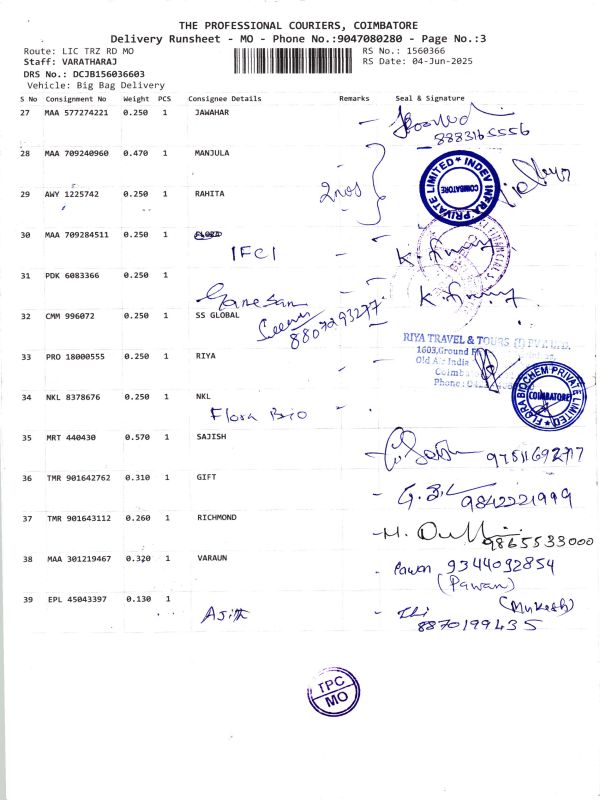 THE PROFESSIONAL COURIERS, COIMBATORE
Delivery Runsheet - MO - Phone No.:9047080280 - Page No.:3
Route: LIC TRZ RD MO
RS No.: 1560366
Staff: VARATHARAJ
RS Date: 04-Jun-2025
DRS No.: DCJB156036603
Vehicle: Big Bag Delivery
S No Consignment No Weight PCS Consignee Details Remarks Seal & Signature
27 MAA 577274221 0.250 1 JAWAHAR
8883165556
28 MAA 709240960 0.470 1 MANJULA
INDEV INFRA PRIVATE LIMITED
COIMBATORE
29 AWY 1225742 0.250 1 RAHITA 2nos
30 MAA 709284511 0.250 1
IFCI
31 PDK 6083366 0.250 1
Ganesan
32 CMM 996072 0.250 1 SS GLOBAL
8807293277
RIYA TRAVEL & TOURS (I) PVT. LTD.
33 PRO 18000555 0.250 1 RIYA
1603, Ground
Old Air India
Coimb
Phone:
34 NKL 8378676 0.250 1 NKL
FLORA BIOCHEM PRIVATE LIMITED
COIMBATORE
Flora Bio
35 MRT 440430 0.570 1 SAJISH
9751169277
36 TMR 901642762 0.310 1 GIFT
9842221999
37 TMR 901643112 0.260 1 RICHMOND
9865533000
38 MAA 301219467 0.320 1 VARAUN
Pawan 9344092854
(Pawan)
39 EPL 45043397 0.130 1
Ajith
(Mukesh)
8870199435
TPC
MO